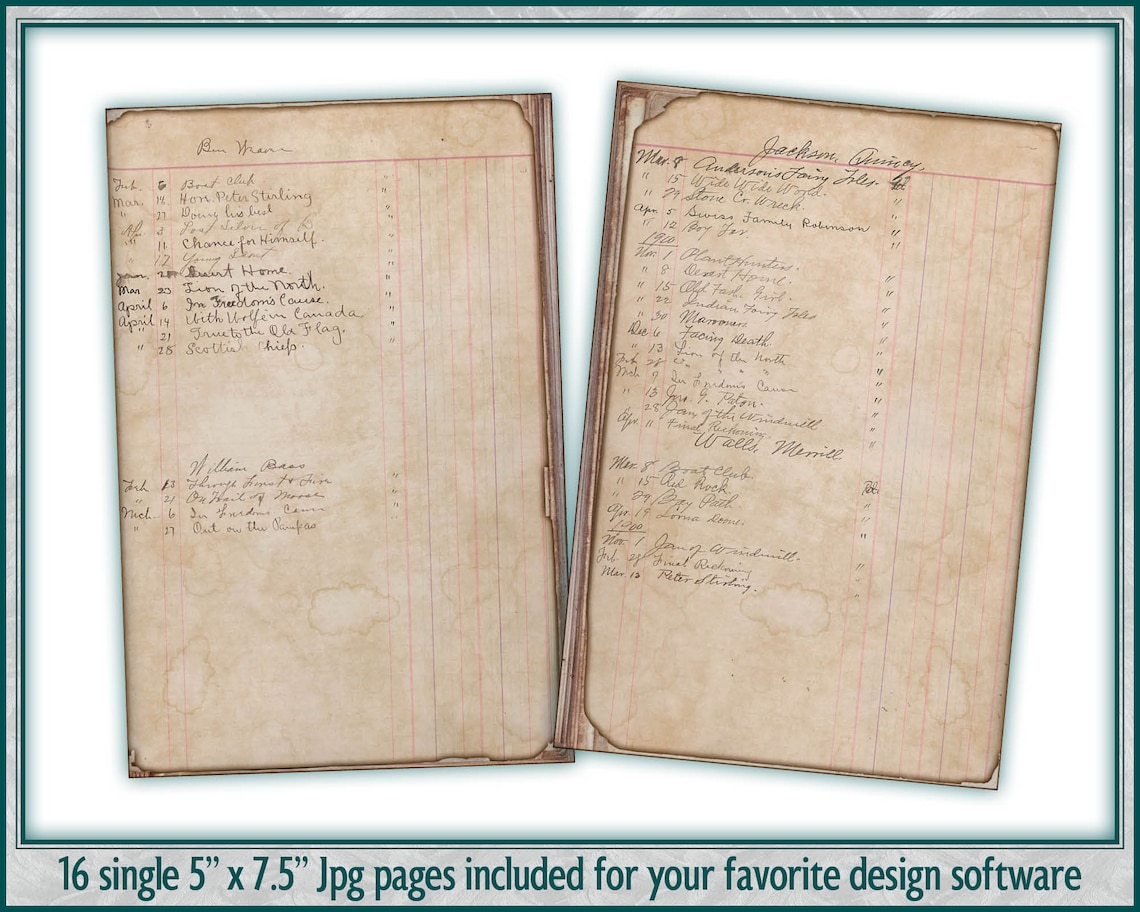 Ben Weaver
Feb. 6 Boat Club "
Mar. 14 Hon. Peter Stirling "
" 27 Doing his best "
Apr. 3 Lost Silver of "
" 11 Chance for Himself. "
" 17 Young Scout "
20 Desert Home. "
Mar 23 Lion of the North. "
April 6 In Freedom's Cause. "
April 14 With Wolfe in Canada "
" 21 True to the Old Flag. "
" 28 Scottish Chiefs. "
William Bass
Feb. 13 Through Forest & Fire "
" 21 On Trail of Moose "
Mch. 6 In Freedom's Cause "
" 27 Out on the Pampas
Jackson, Quincy.
Mar. 8 Anderson's Fairy Tales.
" 15 Wide Wide World. "
" 29 Stone Co. Wreck. "
Apr. 5 Swiss Family Robinson "
" 12 Boy "
1900
Nov. 1 Plant Hunters.
" 8 Desert Home. "
" 15 Old Fash. Girl. "
" 22 Indian Fairy Tales "
" 30 "
Dec. 6 Facing Death. "
" 13 Lion of the North "
Feb. 28 " " " " "
Mch. 7 In Freedom's Cause "
" 13 Jno. G. Paton. "
" 28 Jan of the Windmill "
Apr. 11 Final Reckoning. "
Walls, Merrill
Mar. 8 Boat Club. Ret.
" 15 Red Rock. "
" 29 Path "
Apr. 19 Lorna Doone. "
1900
Nov. 1 Jan of Windmill. "
Feb. 28 Final Reckoning "
Mar. 13 Peter Stirling. "
16 single 5” x 7.5” Jpg pages included for your favorite design software